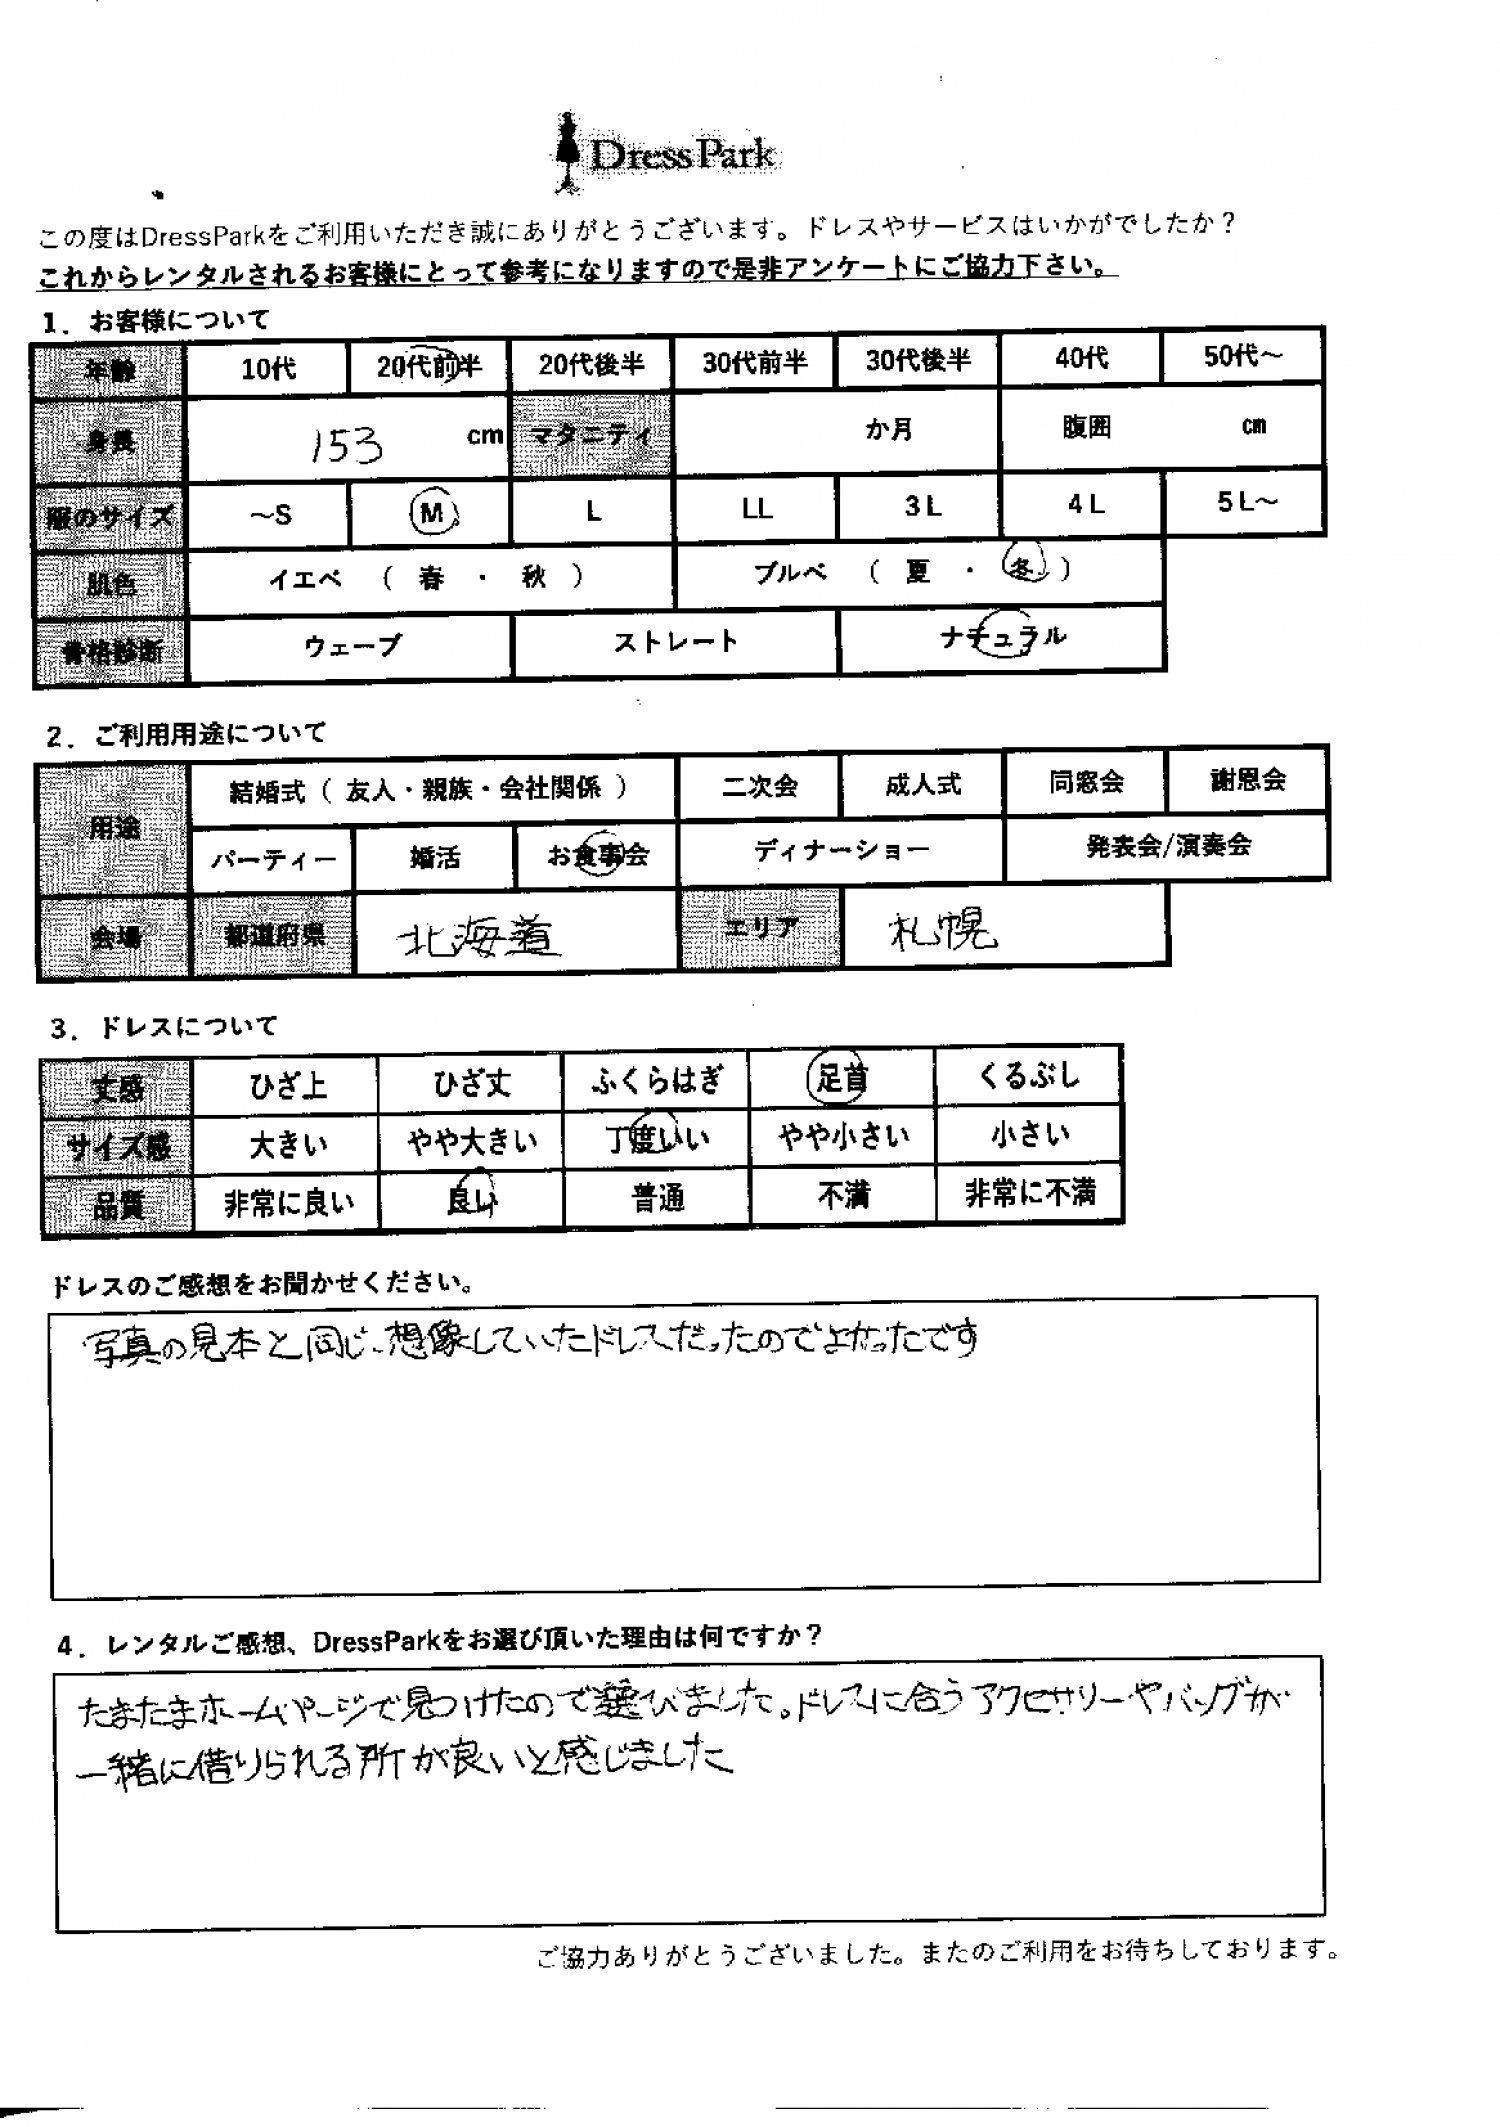 DressPark
この度はDressParkをご利用いただき誠にありがとうございます。ドレスやサービスはいかがでしたか？
これからレンタルされるお客様にとって参考になりますので是非アンケートにご協力下さい。
1．お客様について
年齢 10代 20代前半 20代後半 30代前半 30代後半 40代 50代～
身長 153 cm マタニティ か月 腹囲 cm
服のサイズ ～S M L LL 3L 4L 5L～
肌色 イエベ （ 春 ・ 秋 ） ブルベ （ 夏 ・ 冬 ）
骨格診断 ウェーブ ストレート ナチュラル
2．ご利用用途について
用途 結婚式（ 友人・親族・会社関係 ） 二次会 成人式 同窓会 謝恩会
パーティー 婚活 お食事会 ディナーショー 発表会/演奏会
会場 都道府県 北海道 エリア 札幌
3．ドレスについて
丈感 ひざ上 ひざ丈 ふくらはぎ 足首 くるぶし
サイズ感 大きい やや大きい 丁度いい やや小さい 小さい
品質 非常に良い 良い 普通 不満 非常に不満
ドレスのご感想をお聞かせください。
写真の見本と同じ、想像していたドレスだったのでよかったです
4．レンタルご感想、DressParkをお選び頂いた理由は何ですか？
たまたまホームページで見つけたので選びました。ドレスに合うアクセサリーやバッグが
一緒に借りられる所が良いと感じました
ご協力ありがとうございました。またのご利用をお待ちしております。